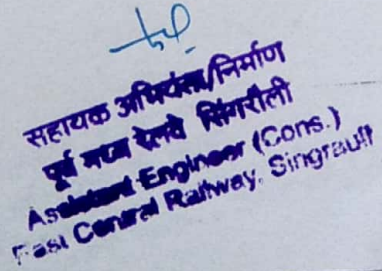 सहायक अभियंता/निर्माण
पूर्व मध्य रेलवे सिंगरौली
Assistant Engineer (Cons.)
East Central Railway, Singrauli